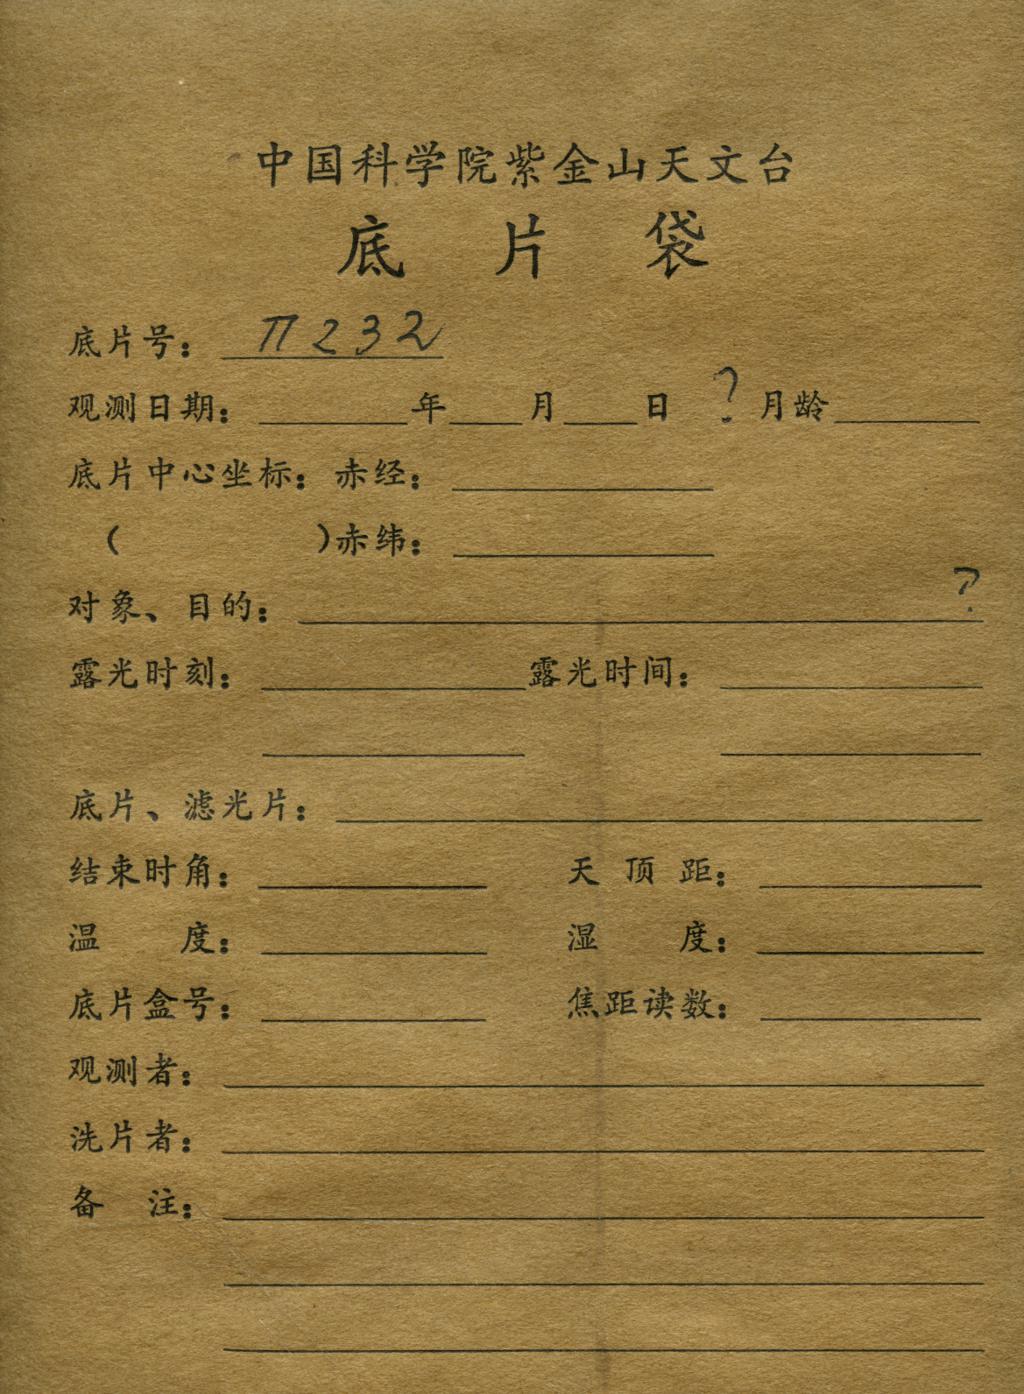 中国科学院紫金山天文台
底片袋
底片号： П232
观测日期： 年 月 日 ? 月龄
底片中心坐标：赤经：
( )赤纬：
对象、目的： ?
露光时刻： 露光时间：
底片、滤光片：
结束时角： 天顶距：
温度： 湿度：
底片盒号： 焦距读数：
观测者：
洗片者：
备注：